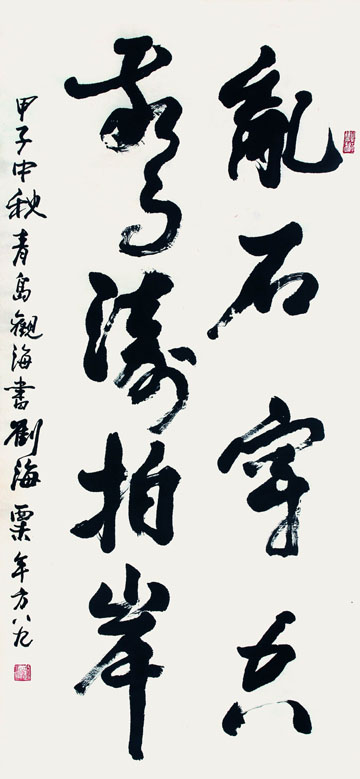 亂石穿空
驚濤拍岸
甲子中秋青島觀海書劉海粟年方八九